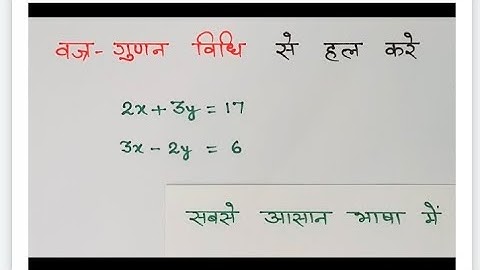 वज्र-गुणन विधि से हल करे
2x + 3y = 17
3x - 2y = 6
सबसे आसान भाषा में